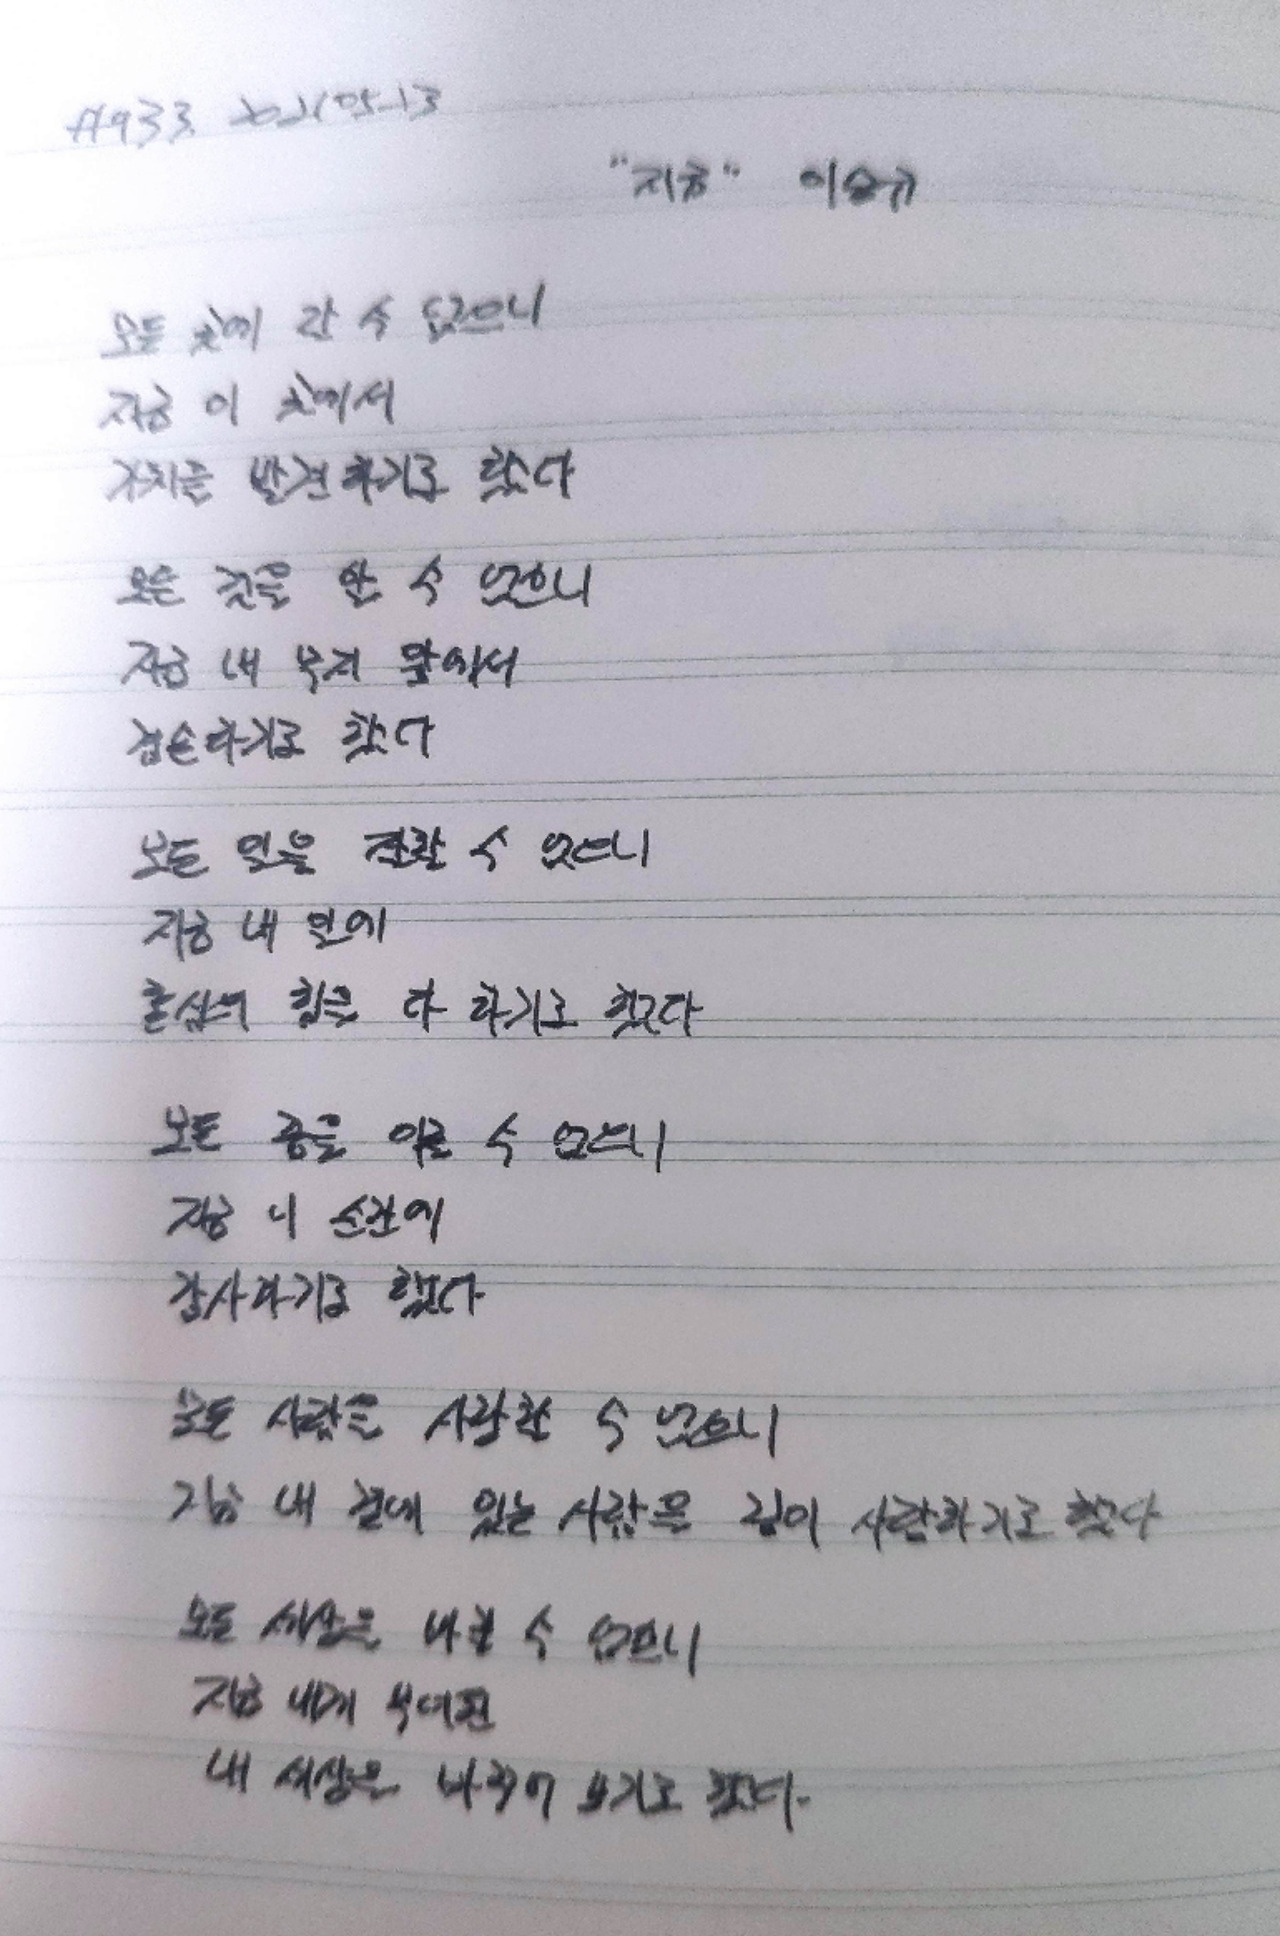 #933
"지금" 이승규
모든 곳에 갈 수 없으니
지금 이 곳에서
가치를 발견하기로 했다
모든 것을 알 수 없으니
지금 내 무지 앞에서
겸손하기로 했다
모든 일을 잘할 수 없으니
지금 내 일에
혼심의 힘을 다 하기로 했다
모든 꿈을 이룰 수 없으니
지금 이 순간에
감사하기로 했다
모든 사람을 사랑할 수 없으니
지금 내 곁에 있는 사람을 깊이 사랑하기로 했다
모든 세상을 바꿀 수 없으니
지금 내게 부여된
내 세상을 바꾸어 보기로 했다.